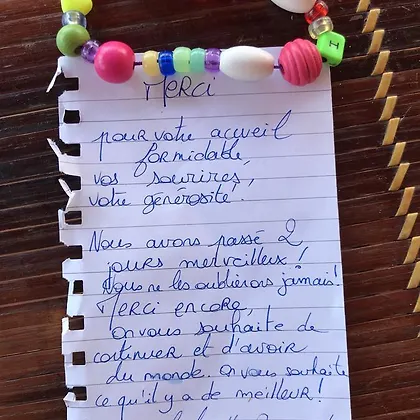 I
Merci
pour votre accueil
formidable,
vos sourires,
votre générosité.
Nous avons passé 2
jours merveilleux !
Nous ne les oublierons jamais!
Merci encore,
On vous souhaite de
continuer et d'avoir
du monde. On vous souhaite
ce qu'il y a de meilleur !